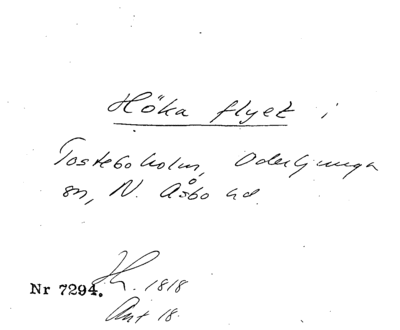 Höka flyet i
Tosteboholm, Oderljunga
sn, N. Åsbo hd.
Nr 7294. 1818
Ant 18.